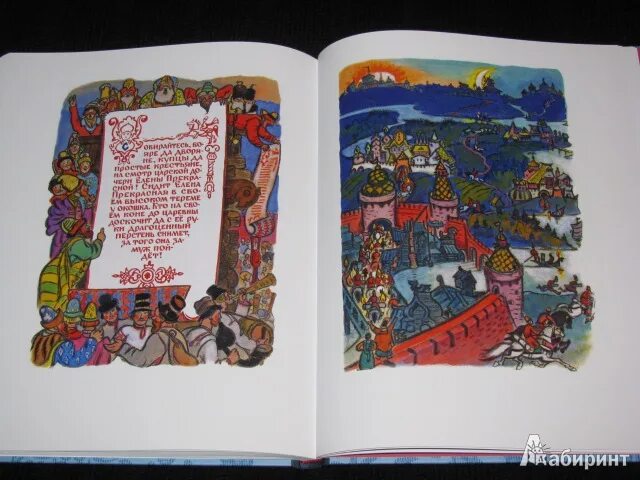 Собирайтесь, бо-
яре да дворя-
не, купцы да
простые крестьяне,
на смотр царской до-
чери Елены Прекрас-
ной! Сидит Елена
Прекрасная в сво-
ём высоком тереме
у окошка. Кто на сво-
ём коне до царевны
доскочит да с её ру-
ки драгоценный
перстень снимет,
за того она за-
муж пой-
дёт!
Лабиринт